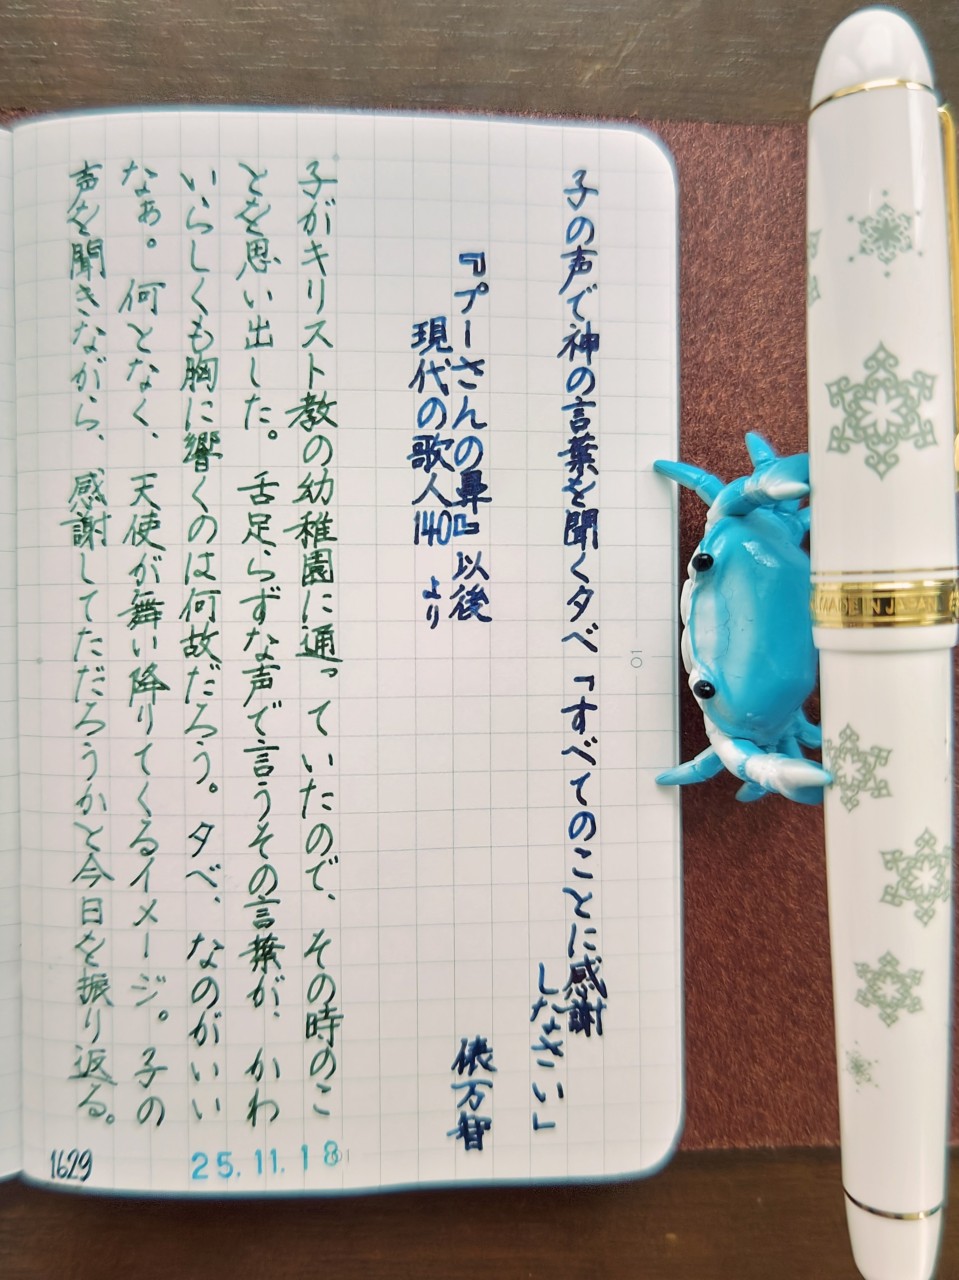 子の声で神の言葉を聞く夕べ「すべてのことに感謝
しなさい」
俵万智
『プーさんの鼻』以後
現代の歌人140 より
子がキリスト教の幼稚園に通っていたので、その時のこ
とを思い出した。舌足らずな声で言うその言葉が、かわ
いらしくも胸に響くのは何故だろう。夕べ、なのがいい
なぁ。何となく、天使が舞い降りてくるイメージ。子の
声を聞きながら、感謝してただろうかと今日を振り返る。
1629
25.11.18
01
MADE IN JAPAN